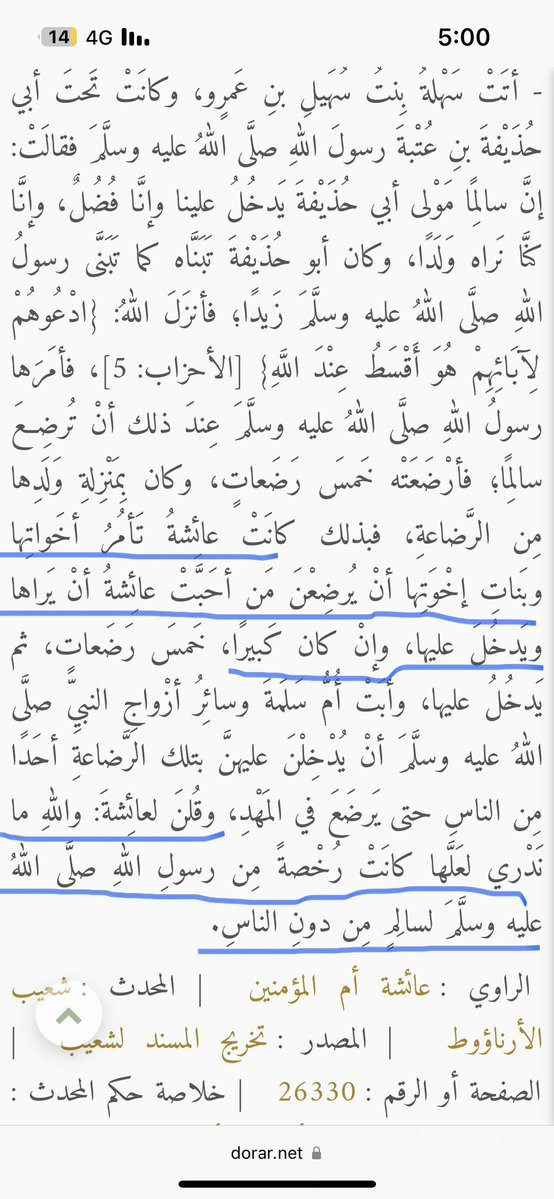 14 4G 5:00
- أتَتْ سَهْلةُ بِنتُ سُهَيلِ بنِ عَمرٍو، وكانَتْ تَحتَ أبي
حُذَيْفةَ بنِ عُتْبةَ رسولَ اللهِ صلَّى اللهُ عليه وسلَّمَ فقالَتْ:
إنَّ سالِمًا مَوْلى أبي حُذَيْفةَ يَدخُلُ علينا وإنَّا فُضُلٌ، وإنَّا
كنَّا نَراه وَلَدًا، وكان أبو حُذَيْفةَ تَبَنَّاه كما تَبَنَّى رسولُ
اللهِ صلَّى اللهُ عليه وسلَّمَ زَيدًا؛ فأنزَلَ اللهُ: {ادْعُوهُمْ
لِآبَائِهِمْ هُوَ أَقْسَطُ عِنْدَ اللَّهِ} [الأحزاب: 5]، فأمَرَها
رسولُ اللهِ صلَّى اللهُ عليه وسلَّمَ عِندَ ذلك أنْ تُرضِعَ
سالِمًا؛ فأرْضَعَتْه خَمسَ رَضَعاتٍ، وكان بِمَنْزِلةِ وَلَدِها
مِن الرَّضاعةِ، فبذلك كانَتْ عائشةُ تَأمُرُ أخَواتِها
وبَناتِ إخْوَتِها أنْ يُرضِعْنَ مَن أحَبَّتْ عائشةُ أنْ يَراها
ويَدخُلَ عليها، وإنْ كان كَبيرًا، خَمسَ رَضَعاتٍ، ثم
يَدخُلُ عليها، وأبَتْ أُمُّ سَلَمةَ وسائرُ أزْواجِ النبيِّ صلَّى
اللهُ عليه وسلَّمَ أنْ يُدْخِلْنَ عليهنَّ بتلك الرَّضاعةِ أحَدًا
مِن الناسِ حتى يَرضَعَ في المَهْدِ، وقُلنَ لعائشةَ: واللهِ ما
نَدْري لعَلَّها كانَتْ رُخْصةً مِن رسولِ اللهِ صلَّى اللهُ
عليه وسلَّمَ لسالِمٍ مِن دونِ الناسِ.
الراوي : عائشة أم المؤمنين | المحدث : شعيب
الأرناؤوط | المصدر : تخريج المسند لشعيب |
الصفحة أو الرقم : 26330 | خلاصة حكم المحدث :
dorar.net